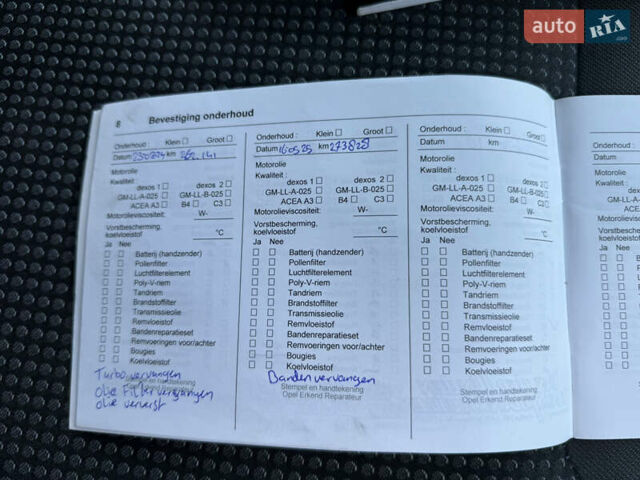 auto RIA .com
8 Bevestiging onderhoud
Onderhoud : Klein □ Groot □
Datum km
Motorolie
Kwaliteit :
dexos 1 □ dexos 2 □
GM-LL-A-025 □ GM-LL-B-025 □
ACEA A3 □ B4 □ C3 □
Motorolieviscositeit: W-
Vorstbescherming,
koelvloeistof °C
Ja Nee
□ □ Batterij (handzender)
□ □ Pollenfilter
□ □ Luchtfilterelement
□ □ Poly-V-riem
□ □ Tandriem
□ □ Brandstoffilter
□ □ Transmissieolie
□ □ Remvloeistof
□ □ Bandenreparatieset
□ □ Remvoeringen voor/achter
□ □ Bougies
□ □ Koelvloeistof
Turbo vervangen
Stempel en handtekening
olie Filter vervangen
olie ververst
Onderhoud : Klein □ Groot □
Datum 160525 km 273828
Motorolie
Kwaliteit :
dexos 1 □ dexos 2 □
GM-LL-A-025 □ GM-LL-B-025 □
ACEA A3 □ B4 □ C3 □
Motorolieviscositeit: W-
Vorstbescherming,
koelvloeistof °C
Ja Nee
□ □ Batterij (handzender)
□ □ Pollenfilter
□ □ Luchtfilterelement
□ □ Poly-V-riem
□ □ Tandriem
□ □ Brandstoffilter
□ □ Transmissieolie
□ □ Remvloeistof
□ □ Bandenreparatieset
□ □ Remvoeringen voor/achter
□ □ Bougies
□ □ Koelvloeistof
Banden vervangen
Stempel en handtekening
Opel Erkend Reparateur
Onderhoud : Klein □ Groot □
Datum km
Motorolie
Kwaliteit :
dexos 1 □ dexos 2 □
GM-LL-A-025 □ GM-LL-B-025 □
ACEA A3 □ B4 □ C3 □
Motorolieviscositeit: W-
Vorstbescherming,
koelvloeistof °C
Ja Nee
□ □ Batterij (handzender)
□ □ Pollenfilter
□ □ Luchtfilterelement
□ □ Poly-V-riem
□ □ Tandriem
□ □ Brandstoffilter
□ □ Transmissieolie
□ □ Remvloeistof
□ □ Bandenreparatieset
□ □ Remvoeringen voor/achter
□ □ Bougies
□ □ Koelvloeistof
Stempel en handtekening
Opel Erkend Reparateur
Onderhoud
Datum
Motorolie
Kwaliteit :
Motorolie
Vorstbesche
koelvloeistof
Ja Nee